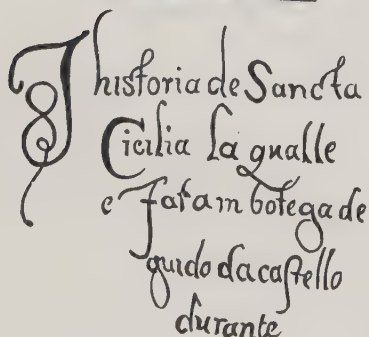 J historia de Sancta
Cicilia la qualle
e fata in botega de
guido da castello
durante